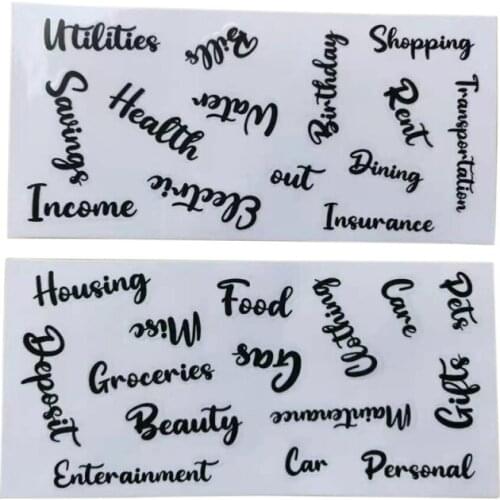 Utilities
Bills
Shopping
Savings
Health
Water
Birthday
Rent
Transportation
Dining
out
Electric
Income
Insurance
Housing
Misc
Food
Clothing
Care
Pets
Deposit
Groceries
Gas
Gifts
Beauty
Maintenance
Enterainment
Car
Personal